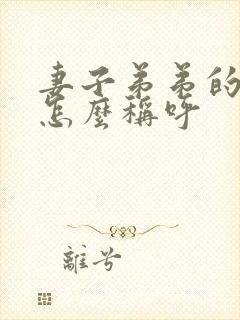 妻子弟弟的
怎麼稱呼
離兮